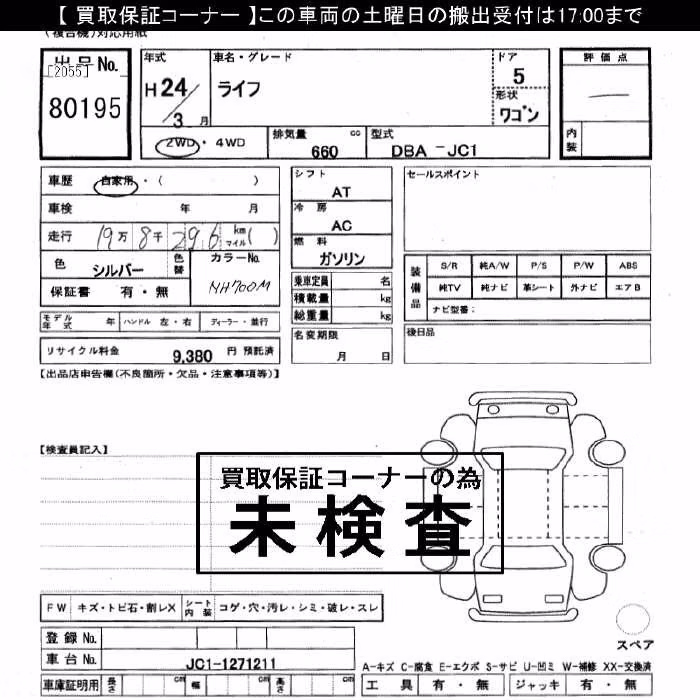 【 買取保証コーナー 】この車両の土曜日の搬出受付は17:00まで
(複合機)対応用紙
出品No.
[2055]
80195
年式
H 24/3 月
車名・グレード
ライフ
ドア
5
形状
ワゴン
評価点
内装
2WD ・ 4WD
排気量 cc
660
型式
DBA -JC1
車歴 自家用・( )
車検 年 月
走行 19万 8千 296 km マイル( )
色 シルバー
色替
カラーNo.
NH700M
保証書 有・無
シフト
AT
冷房
AC
燃料
ガソリン
乗車定員 名
積載量 kg
総重量 kg
セールスポイント
装備品
S/R 純A/W P/S P/W ABS
純TV 純ナビ 革シート 外ナビ エアB
ナビ型番:
モデル年式 年 ハンドル 左・右 ディーラー・並行
名変期限
月 日
後日品
リサイクル料金 9,380 円 預託済
【出品店申告欄(不良箇所・欠品・注意事項等)】
【検査員記入】
買取保証コーナーの為
未検査
FW キズ・トビ石・割レX シート内装 コゲ・穴・汚レ・シミ・破レ・スレ
スペア
登録No.
車台No. JC1-1271211
A-キズ C-腐食 E-エクボ S-サビ U-凹ミ W-補修 XX-交換済
車庫証明用 長さ cm 幅 cm 高さ cm
工具 有・無 ジャッキ 有・無